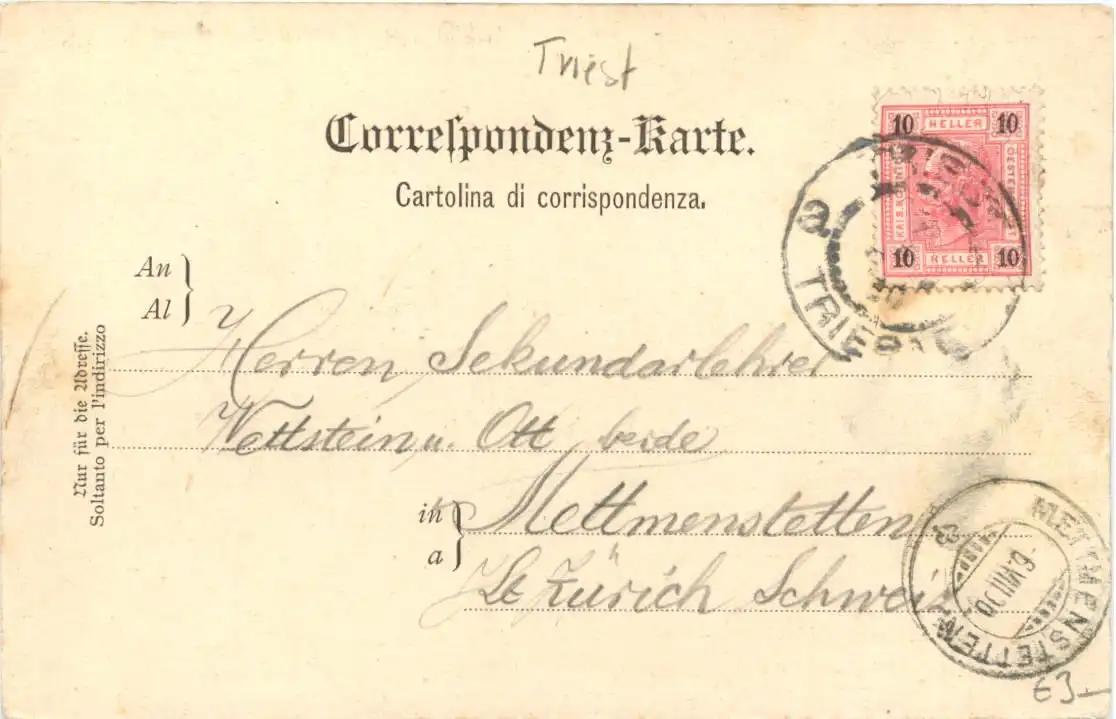 Triest
Correspondenz-Karte.
Cartolina di corrispondenza.
10 HELLER 10
10 HELLER 10
TRIEST
An
Al
Herren Sekundarlehrer
Wettstein u. Ott beide
in
a
Mettmenstetten
Kt Zürich Schweiz
Nur für die Adresse.
Soltanto per l'indirizzo
METTMENSTETTEN
6.VIII.00
63-